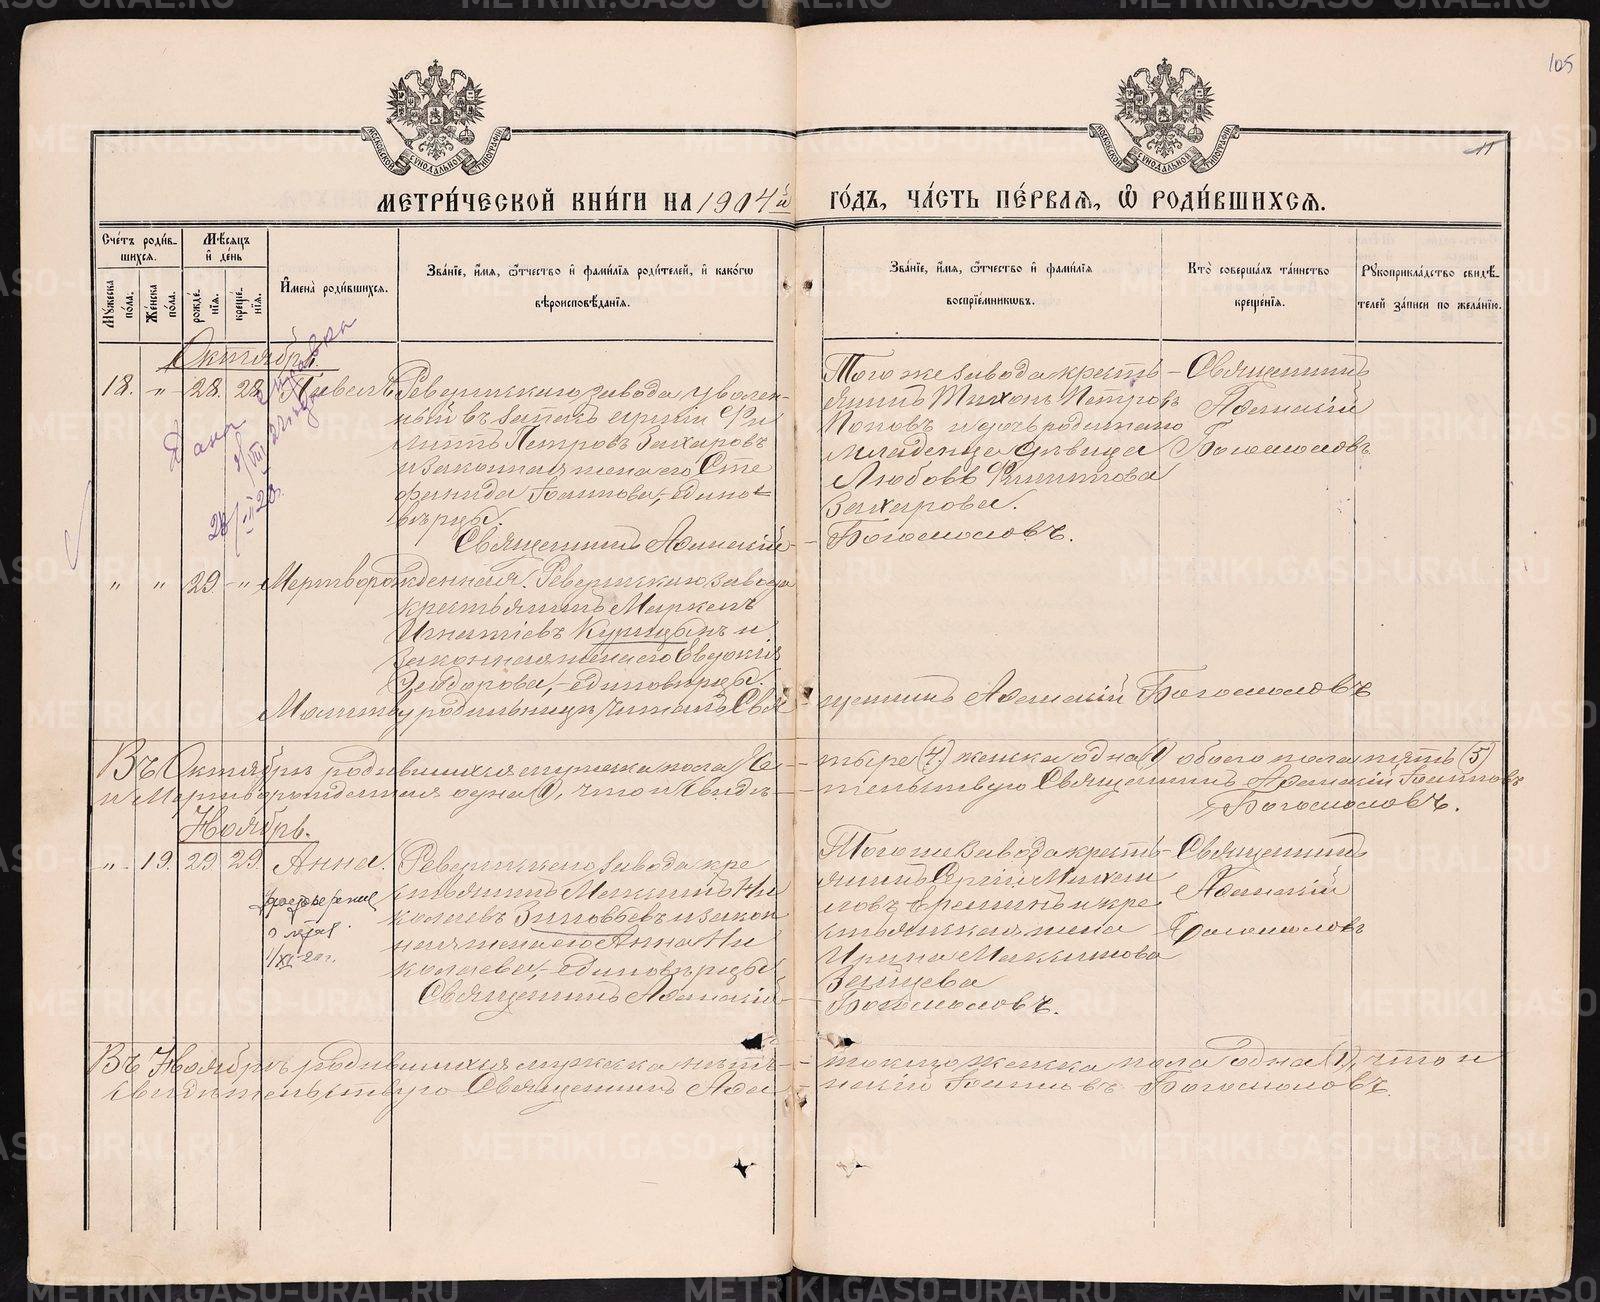 105
11
МЕТРИ́ЧЕСКОЙ КНИ́ГИ НА 1904й ГО́ДЪ, ЧА́СТЬ ПЕ́РВАЯ, Ѽ РОДИ́ВШИХСЯ.
Сче́тъ роди́в-
шихся.
Мѣ́сяцъ
и де́нь
Му́жеска по́ла.
Же́нска по́ла.
рожде́нїя.
креще́нїя.
Имена̀ роди́вшихся.
Зва́нїе, и́мя, ѻ҆́тчество и фами́лїя роди́телей, и како́гѡ
вѣроисповѣ́данїя.
Зва́нїе, и́мя, ѻ҆́тчество и фами́лїя
воспрїе́мникѡвъ.
Кто̀ соверша́лъ та́инство
креще́нїя.
Рꙋкоприкла́дство свидѣ́-
телей за́писи по жела́нїю.
Октябрь.
18. " 28. 28. Павелъ
Ревдинскаго завода уволен-
ный въ запасъ арміи Фи
липпъ Петровъ Захаровъ
и законная жена его Сте
фанида Іоаннова, - едино-
вѣрцы.
Священникъ Аѳанасій
Того же завода кресть-
янинъ Тихонъ Петровъ
Поповъ и дочь родителя
младенца дѣвица
Любовь Филиппова
Захарова.
Богомоловъ.
Священникъ
Аѳанасій
Богомоловъ
Дана справка
" " 29. " Мертворожденная. Ревдинскаго завода
крестьянинъ Маркелъ
Игнатіевъ Курицынъ и
законная жена его Евдокія
Ѳеодорова, - единовѣрцы.
Молитву родильницѣ читалъ Свя-
щенникъ Аѳанасій Богомоловъ
Въ Октябрѣ родившихся мужска пола Че-
тыре (4) женска одна (1) обоего пола пять (5)
и Мертворожденная одна (1), что и свидѣ-
тельствую Священникъ Аѳанасій Іоанновъ
Богомоловъ.
Ноябрь.
" 19. 29 29 Анна.
Ревдинскаго завода кре
стьянинъ Максимъ Ни
колаевъ Зиновьевъ и закон
ная жена его Анна Ни
колаева, - единовѣрцы
Священникъ Аѳанасій
Того же завода кресть-
янинъ Сергій Михаи
ловъ Еремин и кре
стьянская жена
Ирина Максимова
Зайцева
Богомоловъ.
Священникъ
Аѳанасій
Богомоловъ
Удостоверение
о летах.
Въ Ноябрѣ родившихся мужска нѣтъ -
токмо женска пола одна (1), что и
свидѣтельствую Священникъ Аѳа
насій Іоанновъ Богомоловъ.